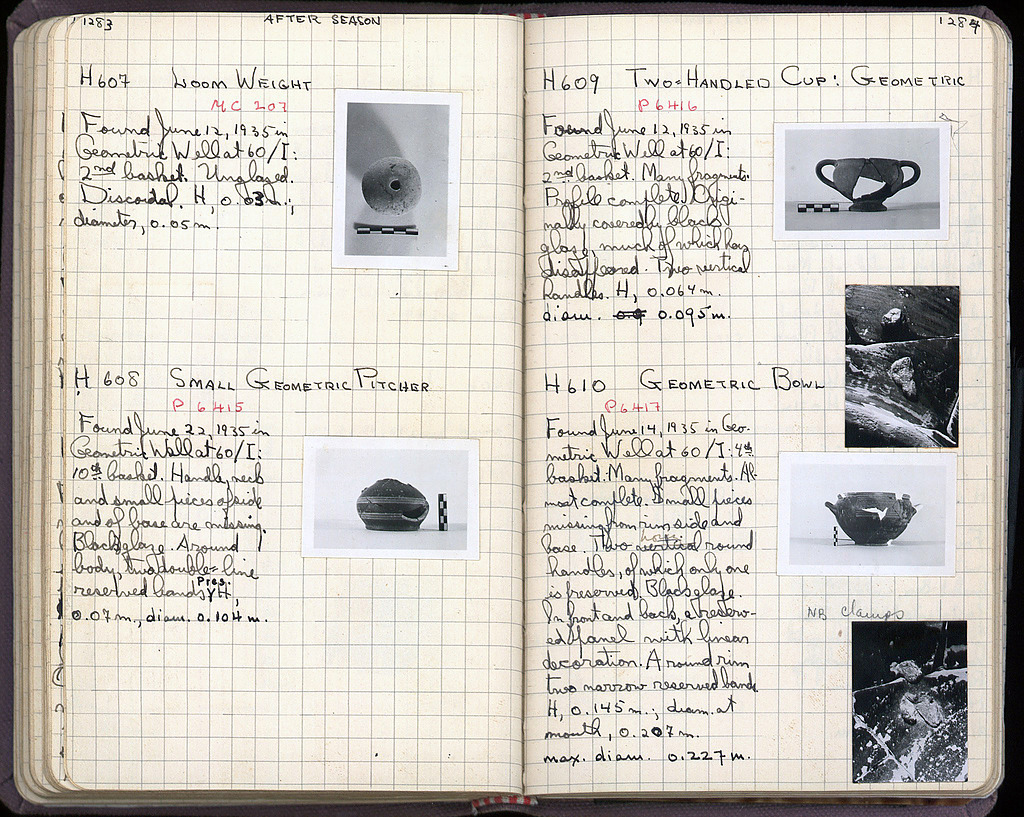 1283
AFTER SEASON
H607 LOOM WEIGHT
MC 207
Found June 12, 1935 in
Geometric Well at 60/I:
2nd basket. Unglazed.
Discoidal. H, 0.03 m.;
diameter, 0.05 m.
H 608 SMALL GEOMETRIC PITCHER
P 6415
Found June 22, 1935 in
Geometric Well at 60/I:
10th basket. Handle, neck
and small pieces of side
and of base are missing.
Black glaze. Around
body, two double-line
reserved bands. Pres. H,
0.07 m., diam. 0.104 m.
1284
H609 TWO-HANDLED CUP: GEOMETRIC
P 6416
Found June 12, 1935 in
Geometric Well at 60/I:
2nd basket. Many fragments.
Profile complete. Origi-
nally covered by black
glaze, much of which has
disappeared. Two vertical
handles. H, 0.064 m.
diam. 0.9 0.095 m.
H610 GEOMETRIC BOWL
P 6417
Found June 14, 1935 in Geo-
metric Well at 60/I: 4th
basket. Many fragments. Al-
most complete. Small pieces
missing from rim side and
base. Two vertical horiz. round
handles, of which only one
is preserved. Black glaze.
In front and back, a reserv-
ed panel with linear
decoration. Around rim
two narrow reserved bands.
H, 0.145 m.; diam. at
mouth, 0.207 m.
max. diam. 0.227 m.
NB clamps